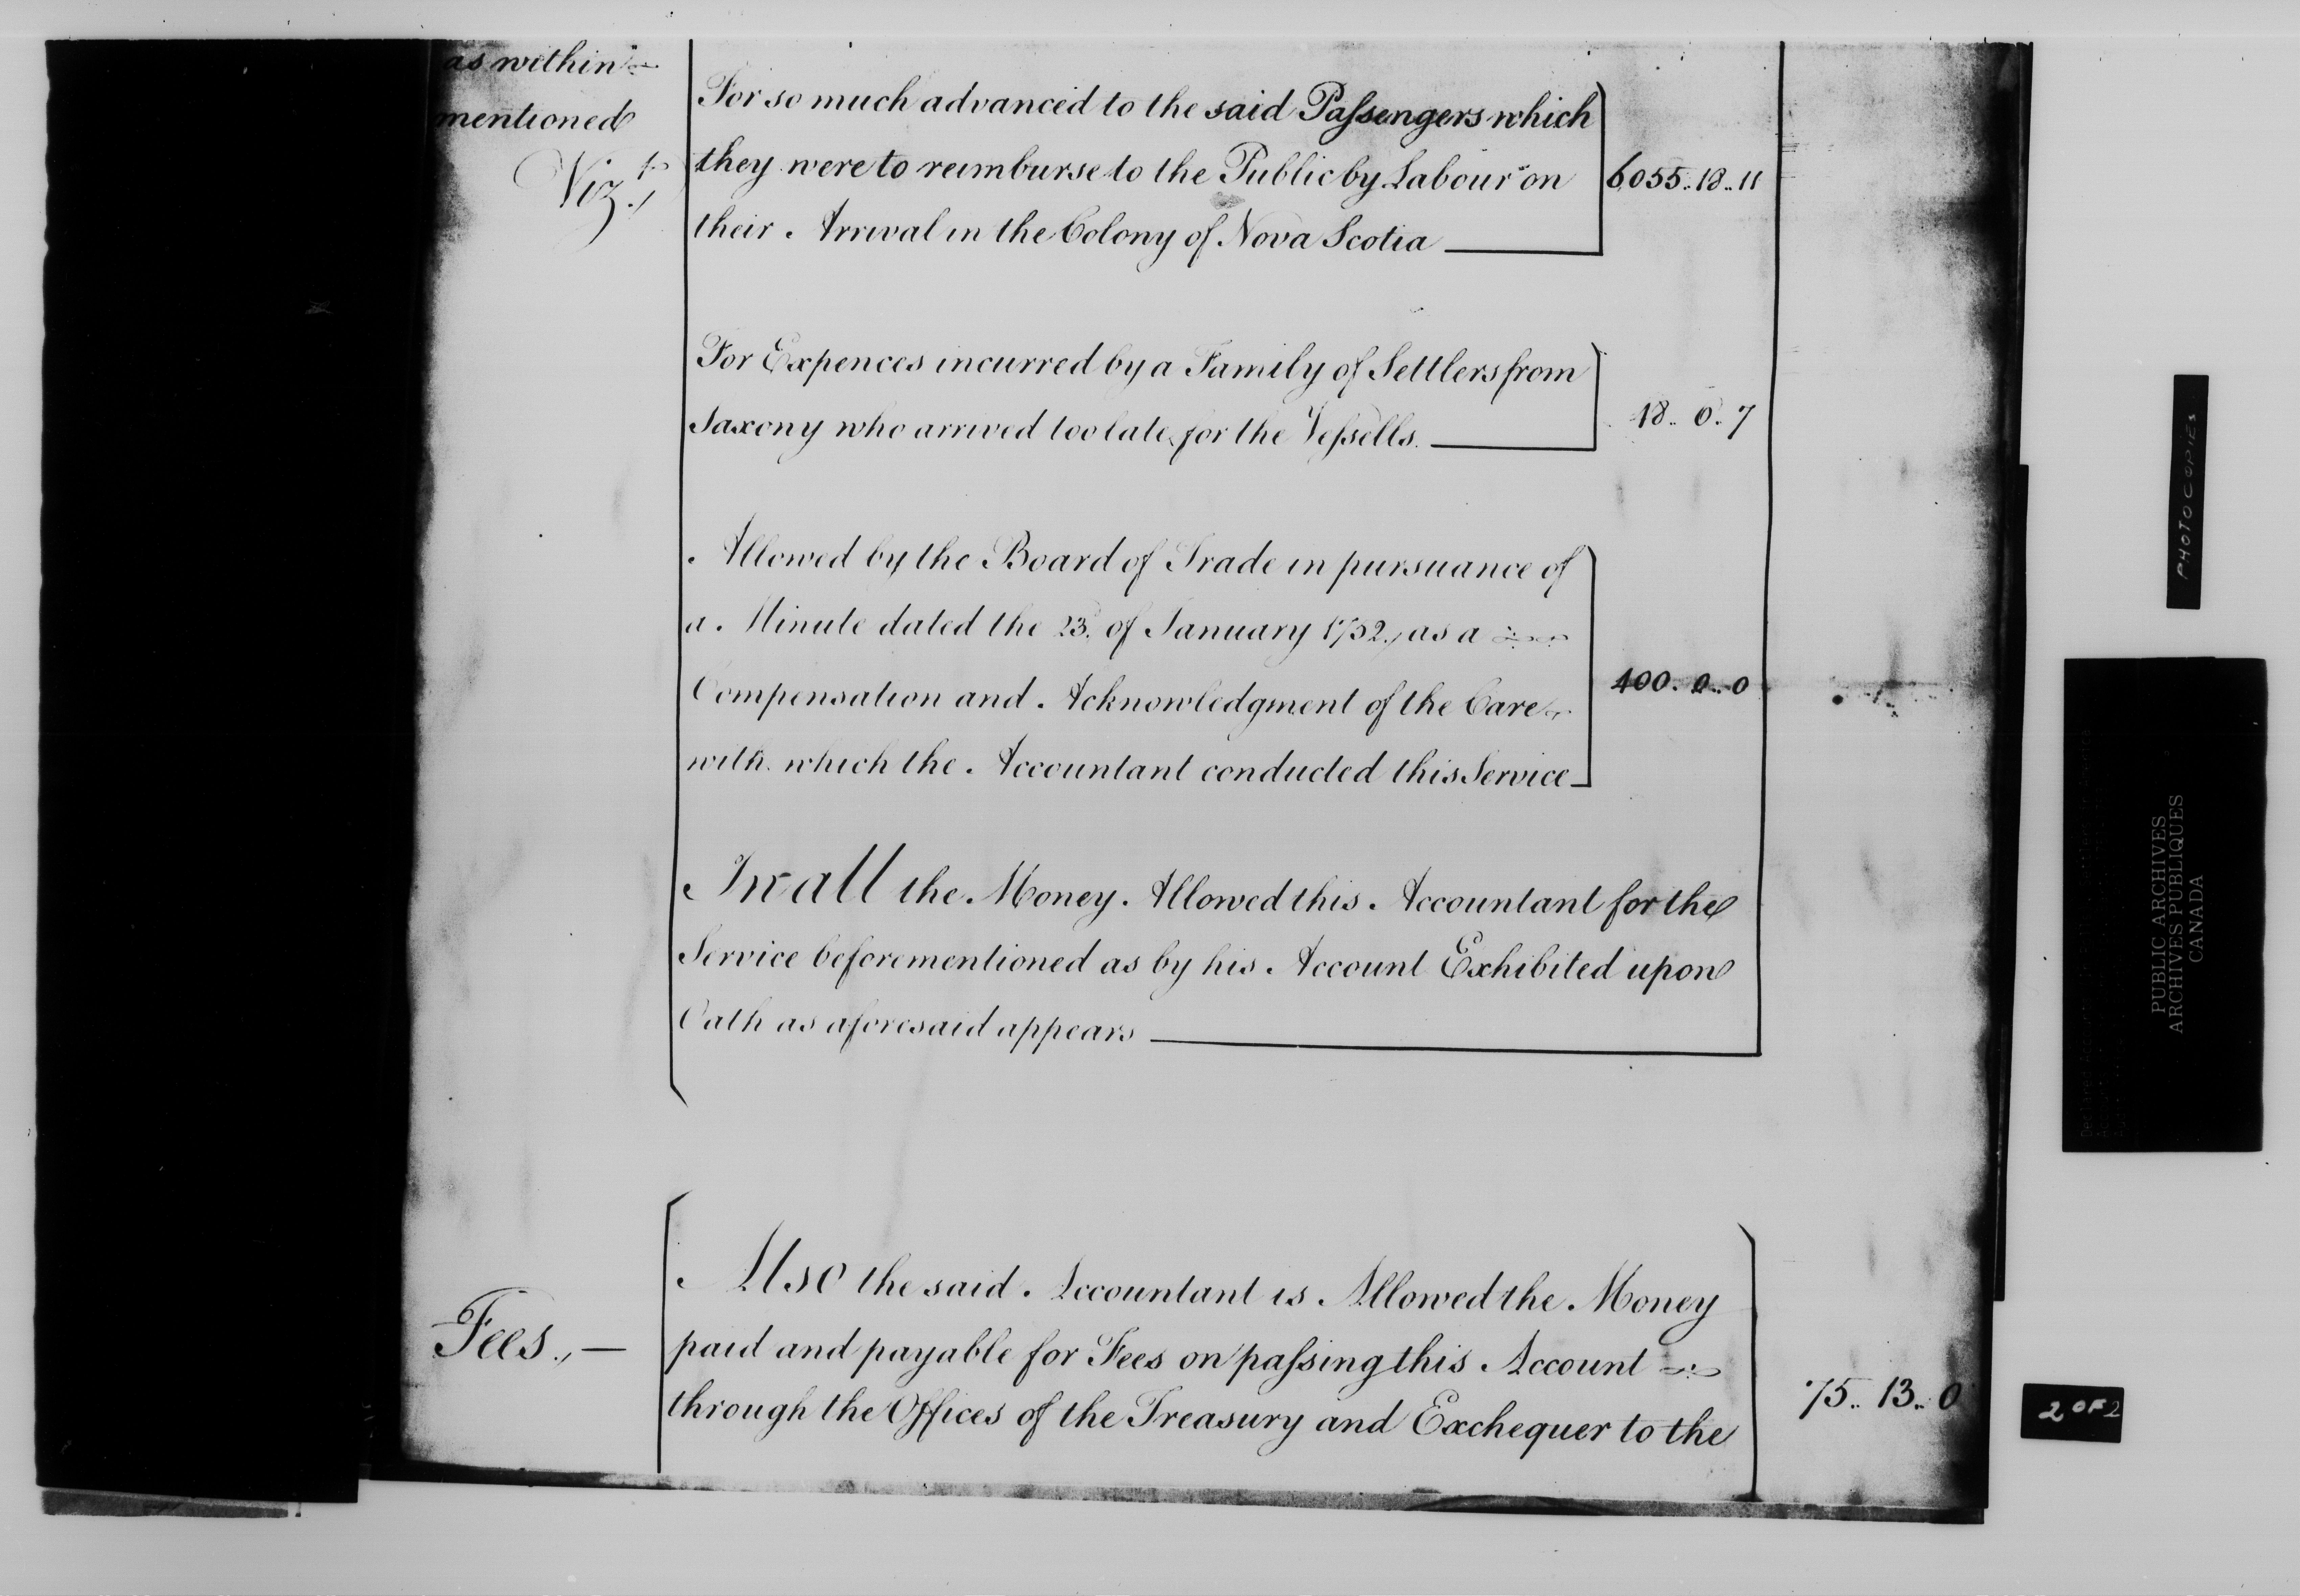 as within
mentioned
Vizt.,
For so much advanced to the said Paſsengers which
they were to reimburse to the Public by Labour on
their Arrival in the Colony of Nova Scotia
6055..18..11
For Expences incurred by a Family of Settlers from
Saxony who arrived too late for the Veſsells.
18..0..7
Allowed by the Board of Trade in pursuance of
a Minute dated the 23d. of January 1752., as a
Compensation and Acknowledgment of the Care
with which the Accountant conducted this Service
400..0..0
In all the Money Allowed this Accountant for the
Service beforementioned as by his Account Exhibited upon
Oath as aforesaid appears
Fees.,—
Also the said Accountant is Allowed the Money
paid and payable for Fees on paſsing this Account
through the Offices of the Treasury and Exchequer to the
75..13..0
PHOTOCOPIES
PUBLIC ARCHIVES
ARCHIVES PUBLIQUES
CANADA
2 OF 2